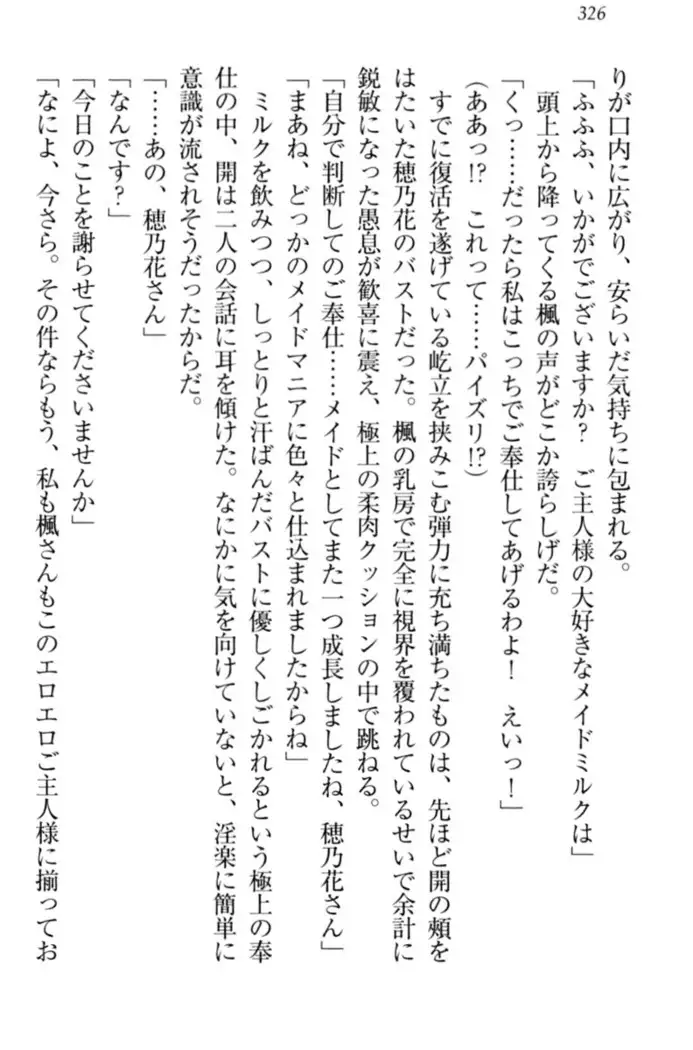 326
りが口内に広がり、安らいだ気持ちに包まれる。
「ふふふ、いかがでございますか？　ご主人様の大好きなメイドミルクは」
頭上から降ってくる楓の声がどこか誇らしげだ。
「くっ……だったら私はこっちでご奉仕してあげるわよ！　えいっ！」
(ああっ!?　これって……パイズリ!?)
すでに復活を遂げている屹立を挟みこむ弾力に充ち満ちたものは、先ほど開の頬を
はたいた穂乃花のバストだった。楓の乳房で完全に視界を覆われているせいで余計に
鋭敏になった愚息が歓喜に震え、極上の柔肉クッションの中で跳ねる。
「自分で判断してのご奉仕……メイドとしてまた一つ成長しましたね、穂乃花さん」
「まあね、どっかのメイドマニアに色々と仕込まれましたからね」
ミルクを飲みつつ、しっとりと汗ばんだバストに優しくしごかれるという極上の奉
仕の中、開は二人の会話に耳を傾けた。なにかに気を向けていないと、淫楽に簡単に
意識が流されそうだったからだ。
「……あの、穂乃花さん」
「なんです？」
「今日のことを謝らせてくださいませんか」
「なによ、今さら。その件ならもう、私も楓さんもこのエロエロご主人様に揃ってお